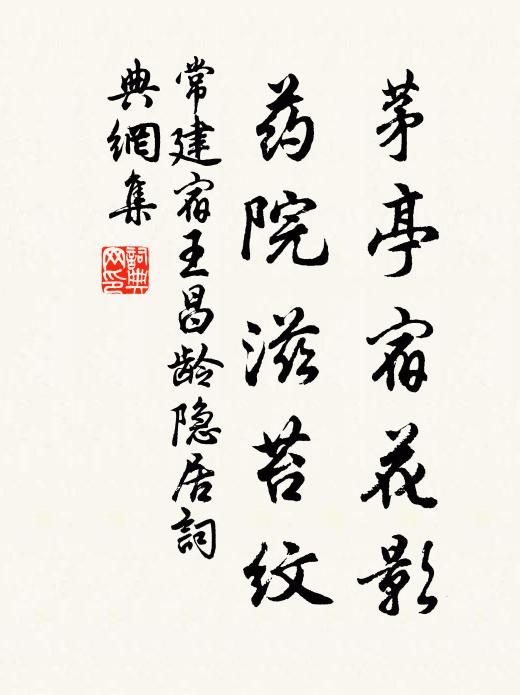 茅亭宿花影
药院滋苔纹
常建宿王昌龄隐居詞
典網集
詞典
网印